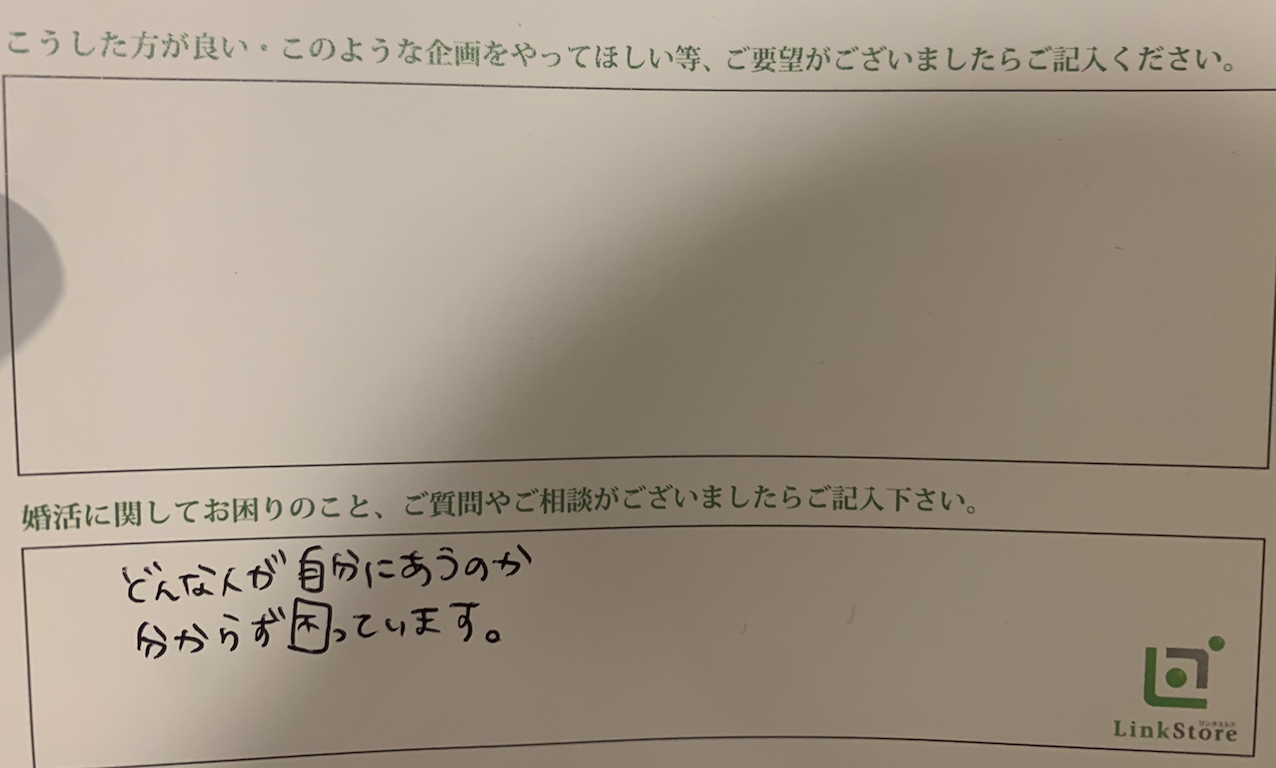 こうした方が良い・このような企画をやってほしい等、ご要望がございましたらご記入ください。
婚活に関してお困りのこと、ご質問やご相談がございましたらご記入下さい。
どんな人が自分にあうのか
分からず困っています。
リンクストア
LinkStore